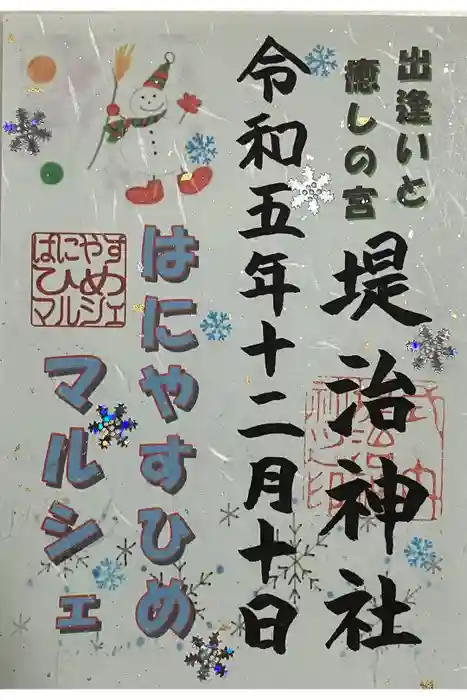 出逢いと
癒しの宮
堤治神社
令和五年十二月十日
はにやすひめ
マルシェ
はにやす
ひめ
マルシェ